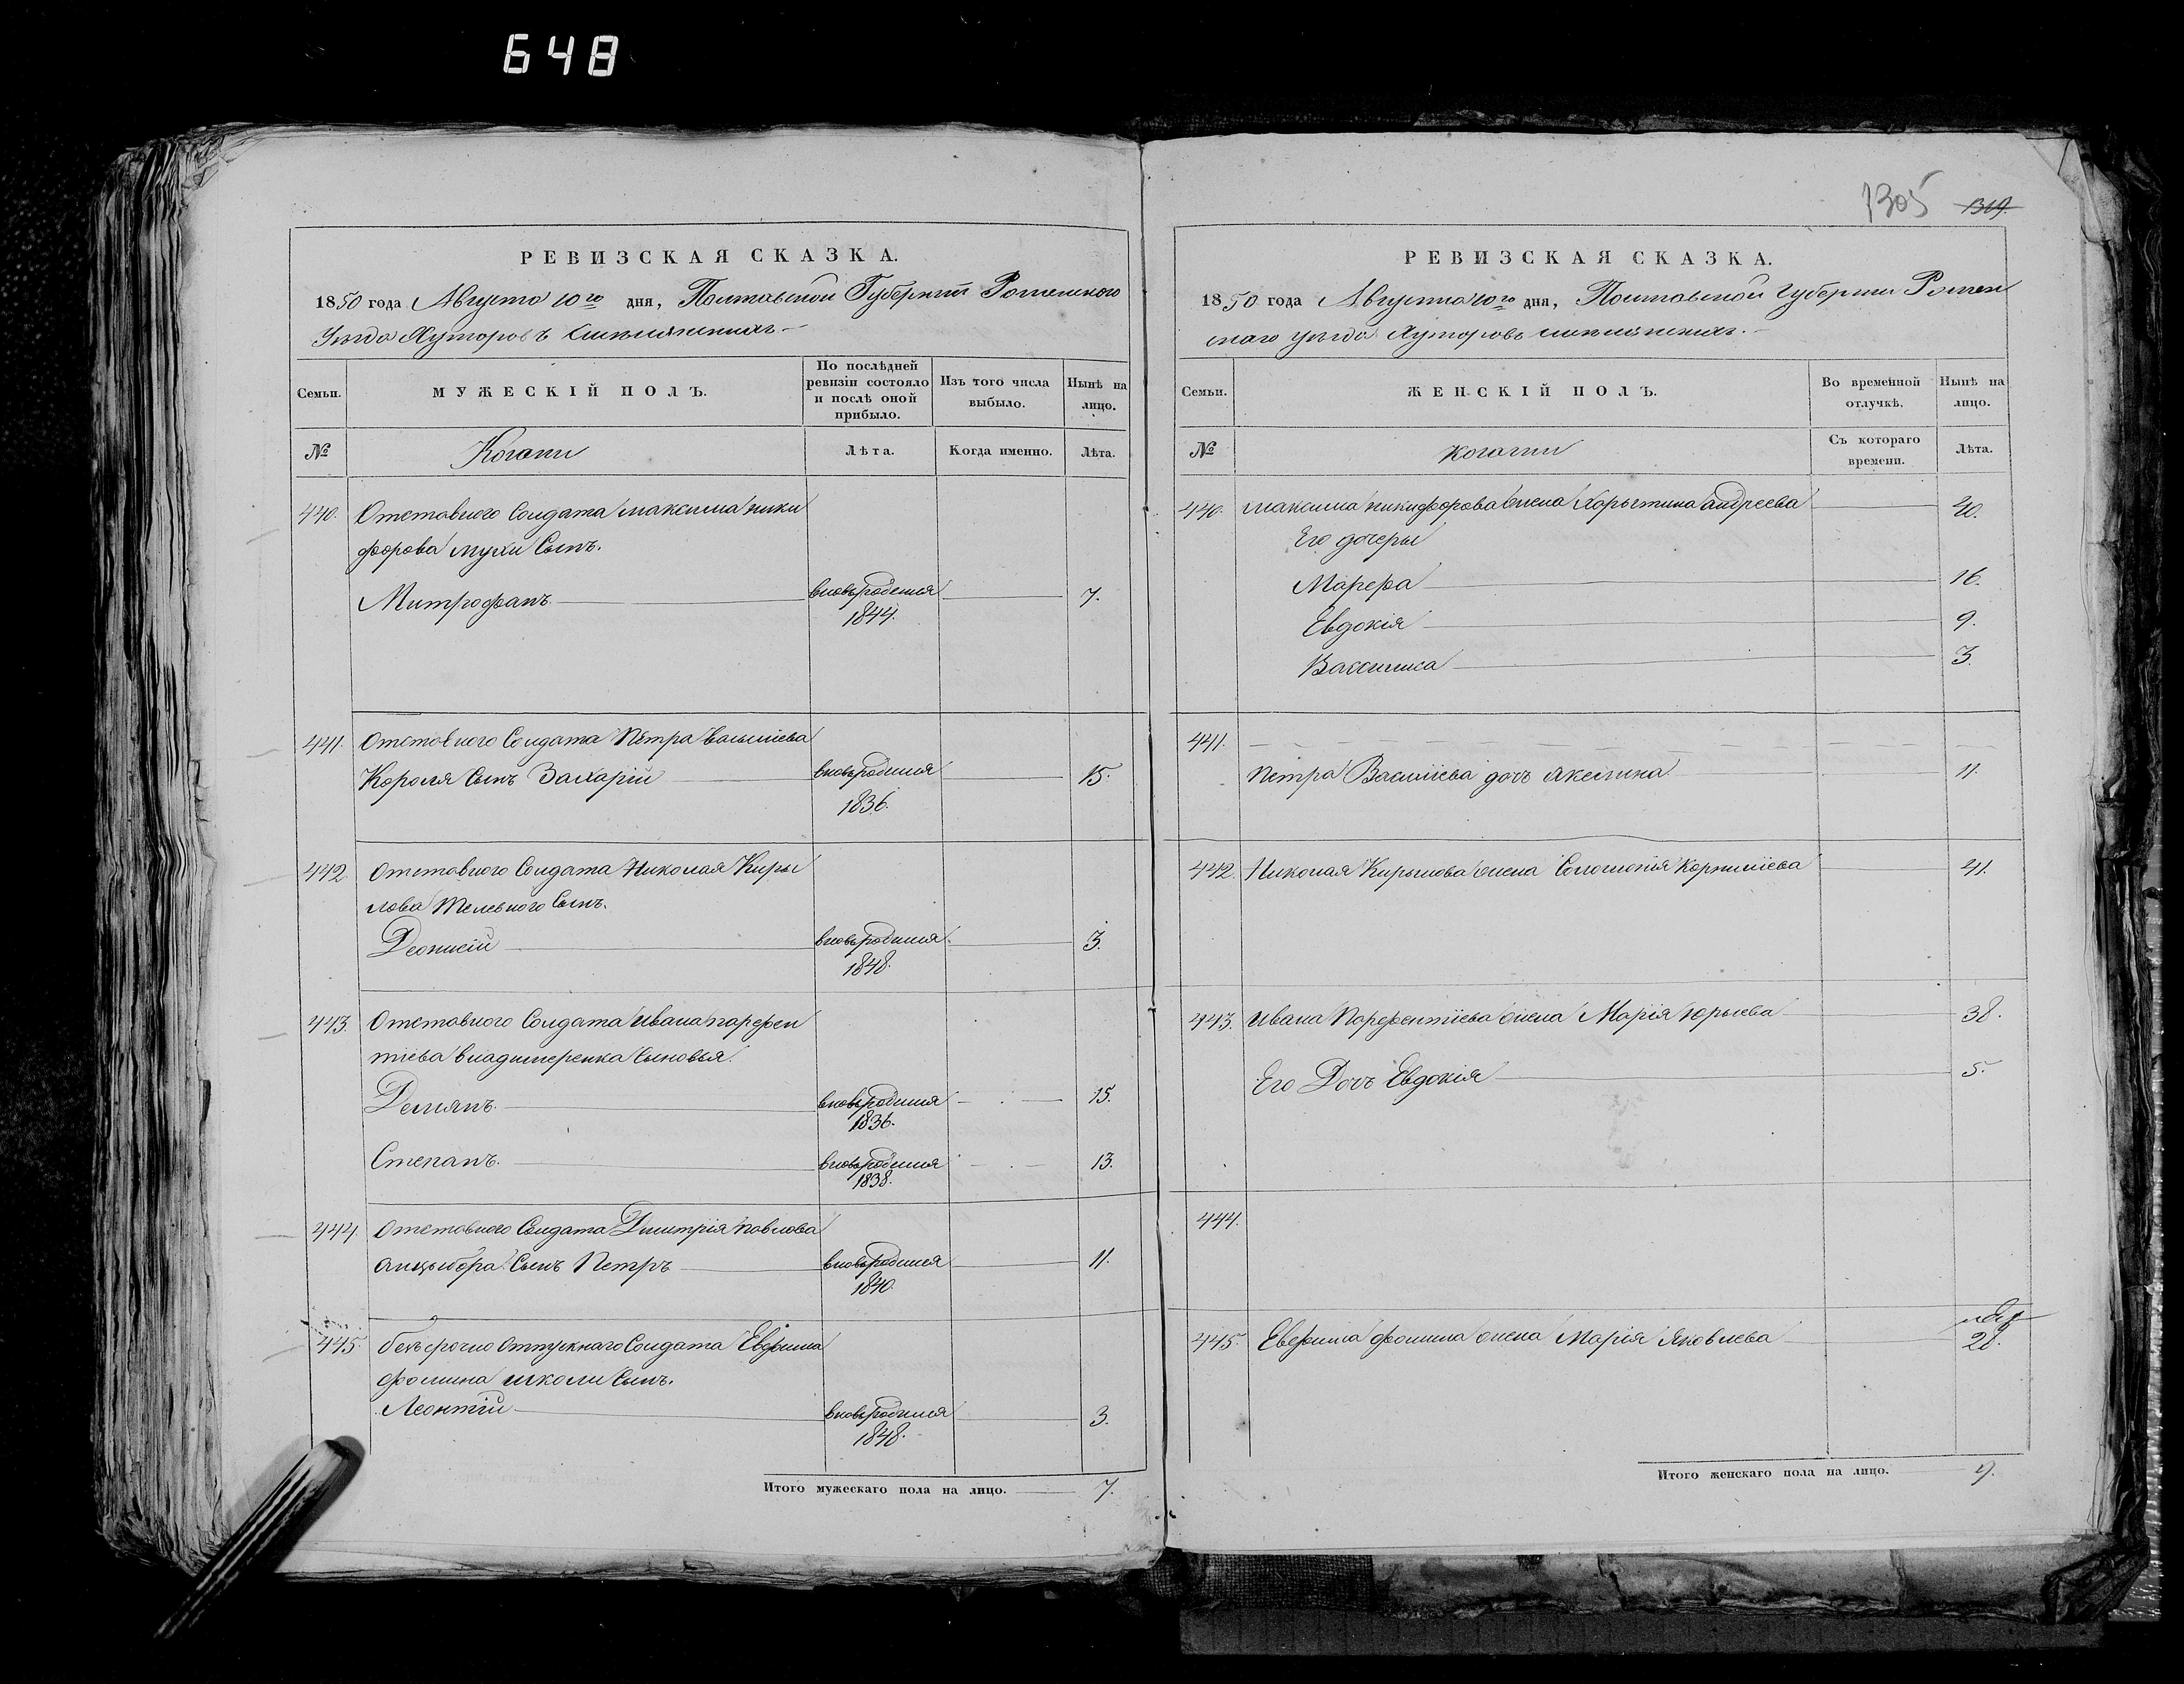 648
1305 1319.
РЕВИЗСКАЯ СКАЗКА.
1850 года Августа 10го дня, Полтавской Губерніи Роменского
Уезда Хуторовъ
Семьи.
МУЖЕСКІЙ ПОЛЪ.
По послѣдней ревизіи состояло и послѣ оной прибыло.
Изъ того числа выбыло.
Нынѣ на лицо.
№
Когани
Лѣта.
Когда именно.
Лѣта.
440. Отставного Солдата Максима Ники
форова Мухи Сынъ.
Митрофанъ. вновьродился 7.
1844.
441. Отставного Солдата Петра Васылiева
Короля Сынъ Захарій вновьродился 15.
1836.
442. Отставного Солдата Николая Киры
лова Телевного Сынъ.
Деонисій вновьродился 3.
1848.
443. Отставного Солдата Ивана парфен
тіева владимеренка Сыновья.
Демянъ. вновьродился 15.
1836.
Степанъ. вновьродился 13.
1838.
444. Отставного Солдата Дмитрія Павлова
Анцыбора Сынъ Петръ вновьродился 11.
1840.
445. безсрочно отпускнаго Солдата Евфима
фомина школи Сынъ.
Леонтій вновьродился 3.
1848.
Итого мужескаго пола на лицо. 7.
РЕВИЗСКАЯ СКАЗКА.
1850 года Августа 10го дня, Полтавской Губерніи Ромен
скаго уезда Хуторовъ
Семьи.
ЖЕНСКІЙ ПОЛЪ.
Во временной отлучкѣ.
Нынѣ на лицо.
№
Когани
Съ котораго времени.
Лѣта.
440. Максима Никифорова жена Харытина андреева 40.
Его дочеры
Марфа 16.
Евдокія 9.
Вассилиса 3.
441.
Петра Василіева дочь Акелина 11.
442. Николая Кирылова жена Соломонія Корнилiева 41.
443. Ивана Парфентіева жена Марія Юрыева 38.
Его Дочь Евдокія 5.
444.
445. Евфима фомина жена Марія Яковлева 28.
Итого женскаго пола на лицо. 9.